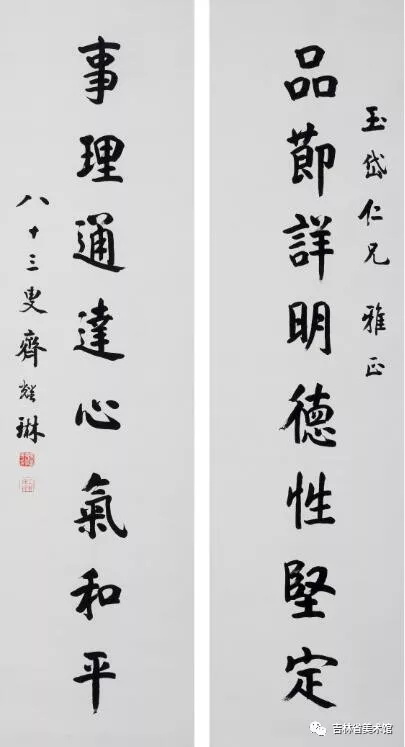 玉岱仁兄 雅正
品節詳明德性堅定
事理通達心氣和平
八十三叟齊耀琳
吉林省美术馆